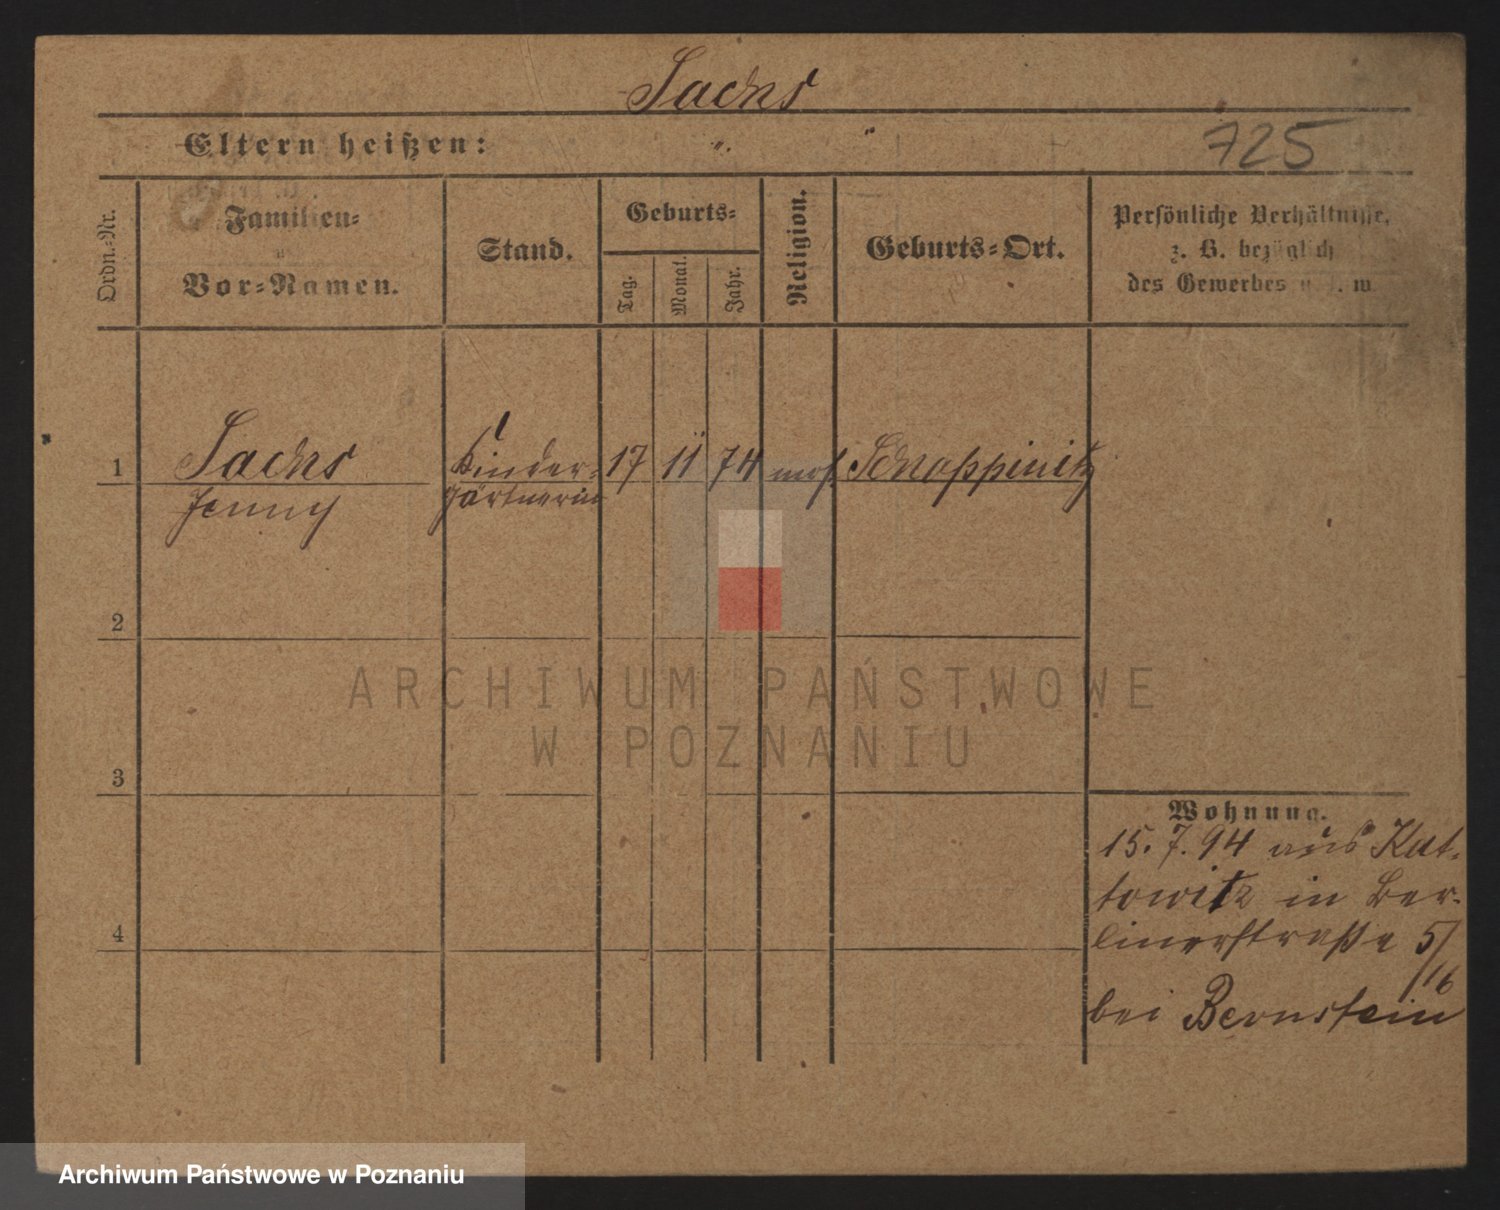 Sachs
Eltern heißen: " "
725
Ordn.-Nr.
Familien-
u
Vor-Namen.
Stand.
Geburts-
Tag.
Monat.
Jahr.
Religion.
Geburts-Ort.
Persönliche Verhältnisse,
z. B. bezüglich
des Gewerbes u. s. w.
1 Sachs Kinder- 17 11 74 mos. Schoppinitz
Jenny gärtnerin
2
3
4
Wohnung.
15. 7. 94 aus Kat-
towitz in Ber-
linerstraße 5/16
bei Bernstein
ARCHIWUM PAŃSTWOWE
W POZNANIU
Archiwum Państwowe w Poznaniu